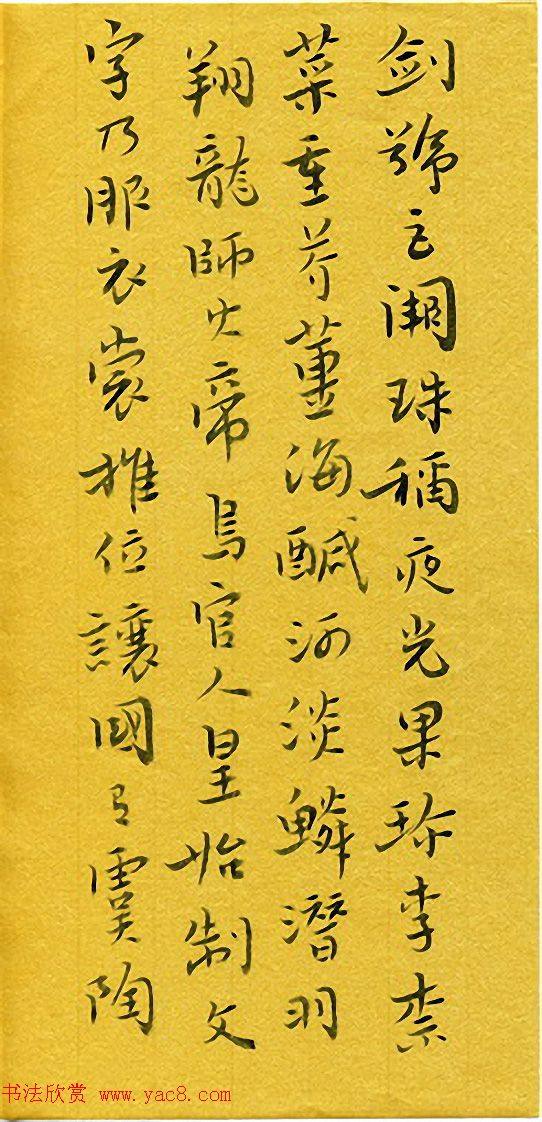 剑號巨阙珠稱夜光果珍李柰
菜重芥薑海醎河淡鱗潛羽
翔龍師火帝鳥官人皇始制文
字乃服衣裳推位讓國有虞陶
书法欣赏 www.yac8.com